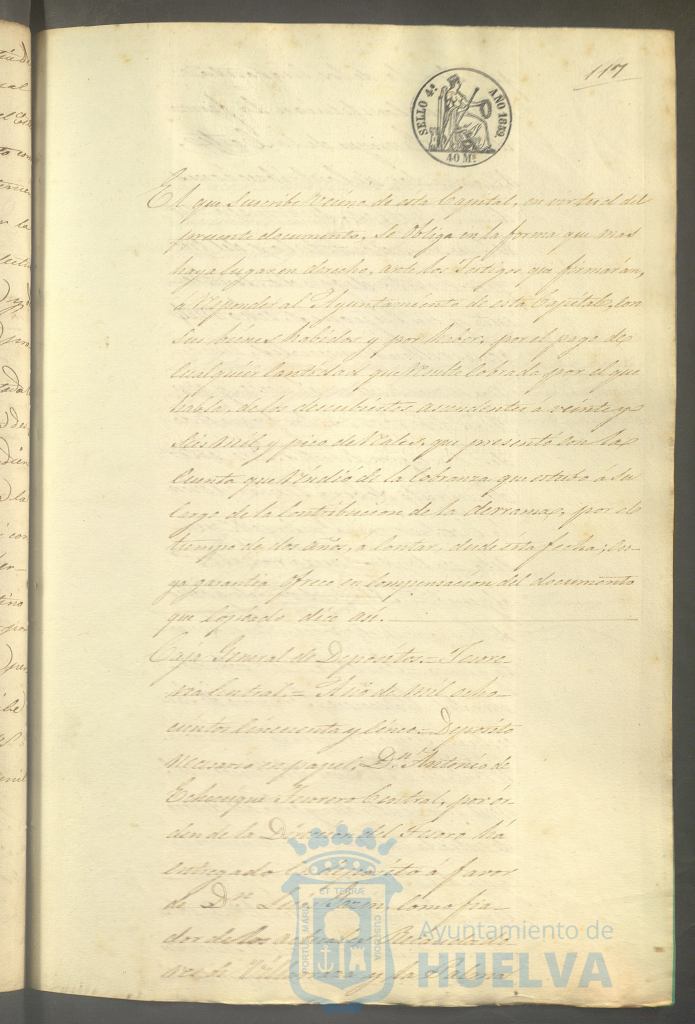 117
SELLO 4º AÑO 1859.
40 Ms
El que suscribe Vecino de esta Capital, en virtud del
presente documento, se obliga en la forma que mas
haya lugar en derecho, ante los Testigos que firmarán,
a responder al Ayuntamiento de esta Capital, con
sus bienes habidos y por haber, por el pago de
cualquier cantidad que resulte cobrada por el que
habla, de los descubiertos ascendentes á veinte y
seis mil y pico de reales, que presentó con la
cuenta que rindió de la cobranza que estubo á su
cargo de la contribucion de la derrama, por el
tiempo de dos años, a contar, desde esta fecha; cu-
ya garantia ofrece en compensacion del documento
que copiado dice asi.
Caja General de Depositos.= Tesore-
ria Central.= Año de mil ocho-
cientos cincuenta y cinco.= Deposito
necesario en papel. Dn. Antonio de
Echenique Tesorero Central, por ór-
den de la Direccion del Tesoro há
entregado en deposito á favor
de Dn. Luis como fia-
dor de los actuales
de Villalba y la Palma
PORTUS MARIS ET TERRÆ CUSTODIA
Ayuntamiento de
HUELVA